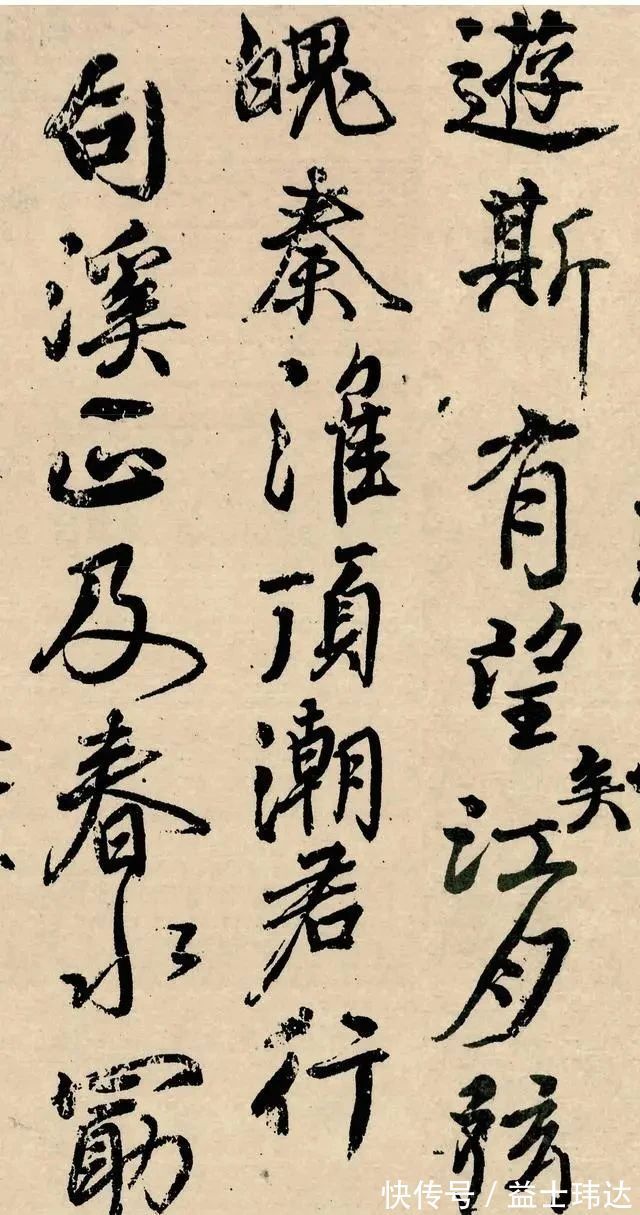 遊斯有望江月
矣
魄秦淮頂潮君行
句溪正及春水
快传号 / 益士玮达